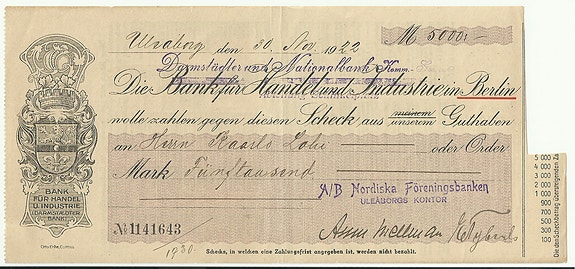 Uleåborg den 30 Nov. 1922 M 5000.-
Darmstädter und Nationalbank Komm.
Die Bank für Handel und Industrie in Berlin
wolle zahlen gegen diesen Scheck aus meinem unserem Guthaben
an Herrn Kaarlo oder Order
Mark Fünftausend
A/B Nordiska Föreningsbanken
ULEÅBORGS KONTOR
BANK
FÜR HANDEL
U. INDUSTRIE
(DARMSTÄDTER
BANK)
№ 1141643
1930
Schecks, in welchen eine Zahlungsfrist angegeben ist, werden nicht bezahlt.
5 000
4 000
3 000
2 000
1 000
500
400
300
200
100